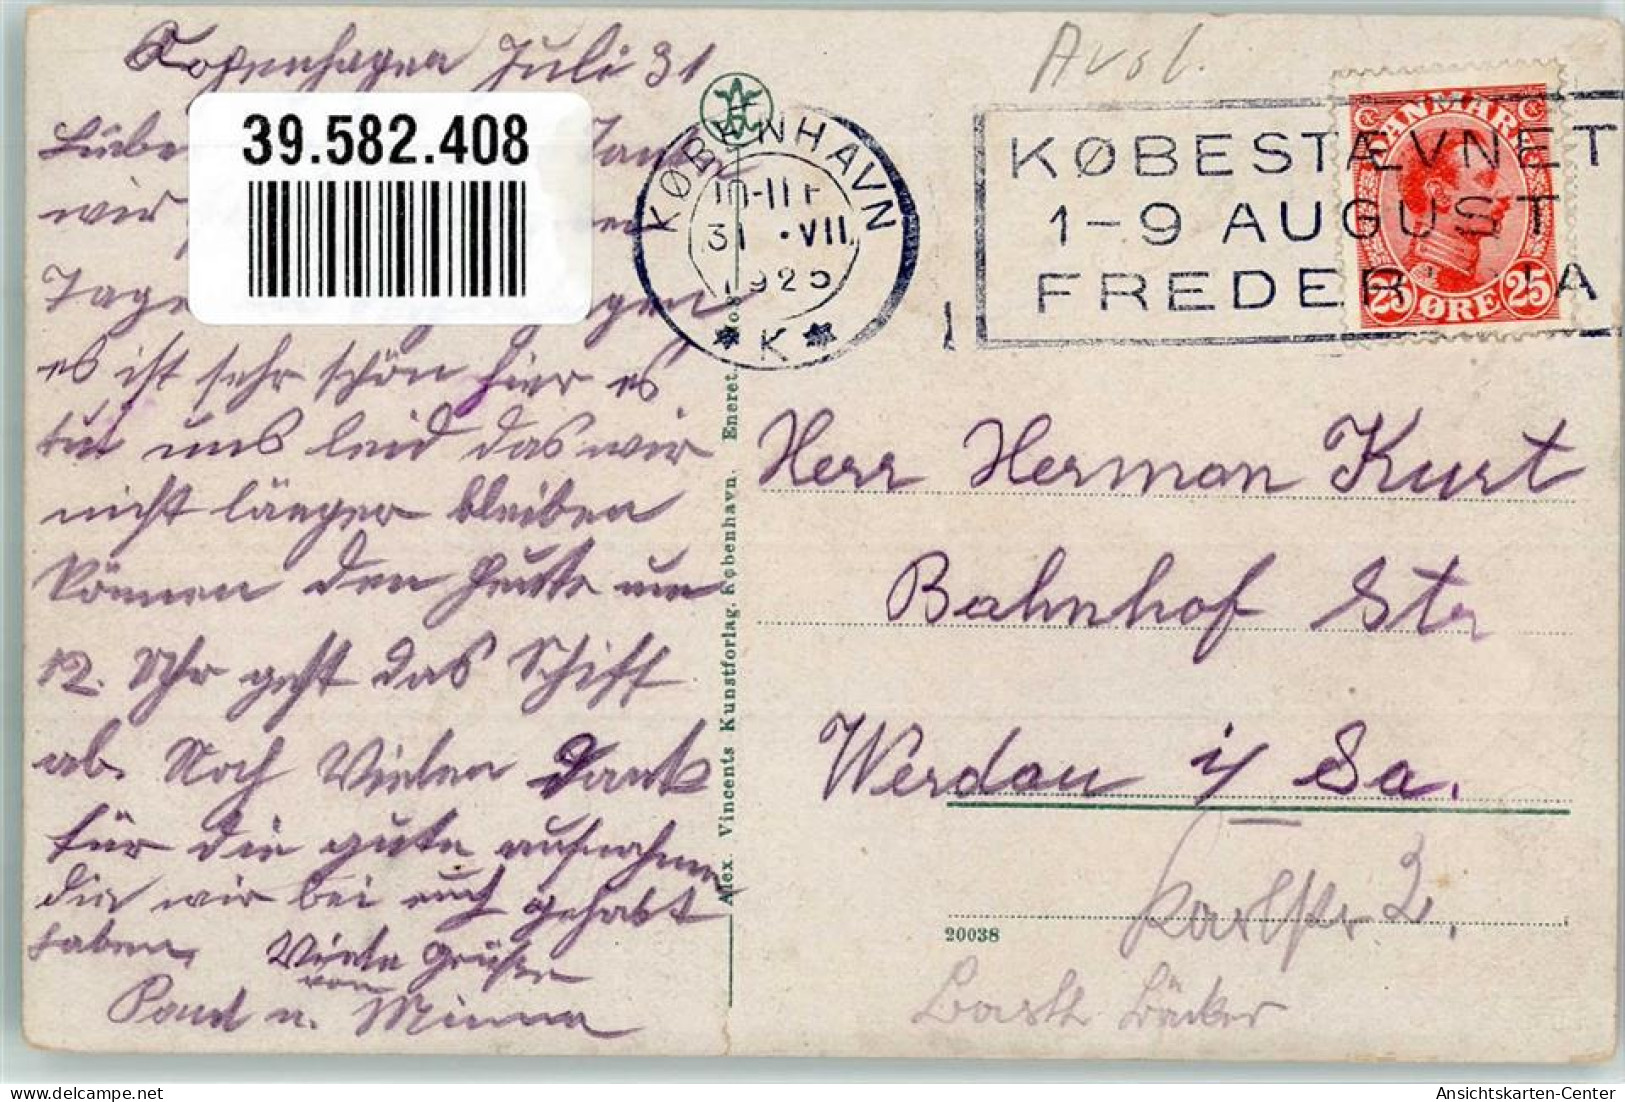 Kopenhagen Juli 31
Liebe Tante
wir
Tage
es ist sehr schön hier es
tut uns leid das wir
nicht länger bleiben
können den heute um
12. Uhr geht das Schiff
ab. Noch Vielen Dank
für die gute aufnahme
die wir bei euch gehabt
haben. Viele Grüße
von
Paul u. Minna
39.582.408
Avsl.
KØBENHAVN
10-11 F
31.VII
1925
* K *
KØBESTÆVNET
1-9 AUGUST
FREDERICIA
DANMARK
25 ØRE 25
Alex. Vincents Kunstforlag, København. Eneret.
Herr Herman Kurt
Bahnhof Str
Werdau i/ Sa.
Karlstr 2.
20038
Bäcker
delcampe.net
Ansichtskarten-Center